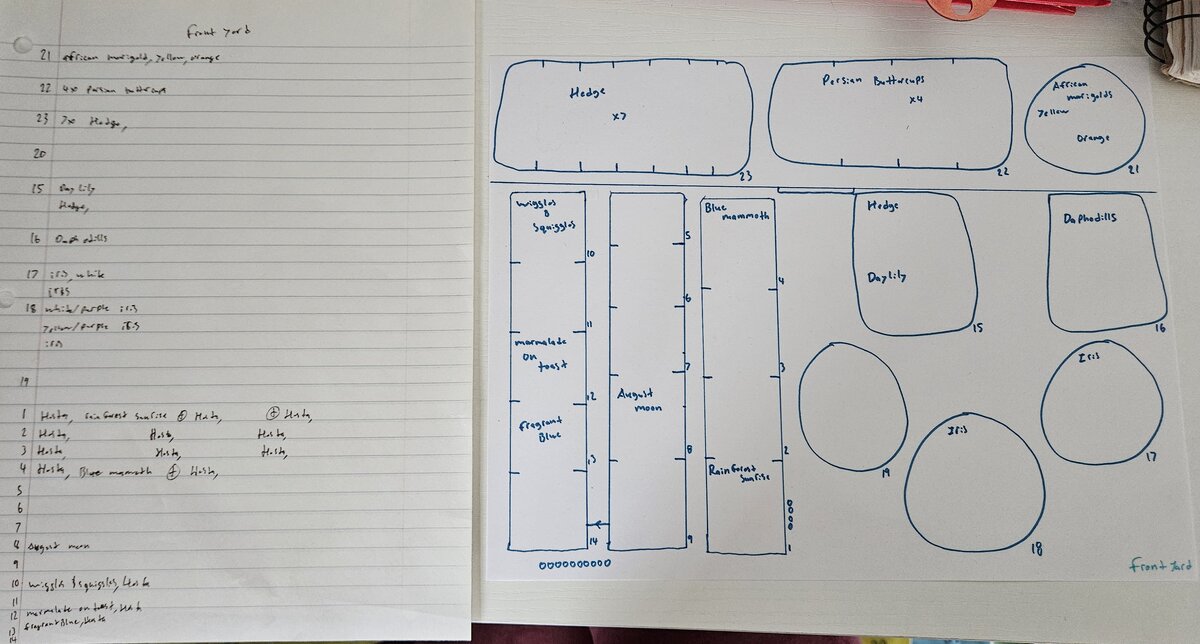 Front Yard
21 African marigold, Yellow, orange
22 4x Persian Buttercups
23 7x Hedge,
20
15 Daylily
Hedge,
16 Daphodills
17 iris, white
iris
18 white/purple iris
Yellow/purple iris
iris
19
1 Hosta, rainforest sunrise ⊕ Hosta, ⊕ Hosta,
2 Hosta, Hosta, Hosta,
3 Hosta, Hosta, Hosta,
4 Hosta, Blue mammoth ⊕ Hosta,
5
6
7
8 August moon
9
10 wiggles & squiggles, Hosta
11
12 marmalade on toast, Hosta
13 fragrant Blue, Hosta
14
Hedge
x7
23
Persian Buttercups
x4
22
African
marigolds
Yellow
Orange
21
wiggles
&
squiggles
10
11
marmalade
on
toast
12
fragrant
Blue
13
14
5
6
7
August
moon
8
9
Blue
mammoth
4
3
2
Rainforest
sunrise
1
Hedge
Daylily
15
Daphodills
16
19
Iris
18
Iris
17
Front Yard